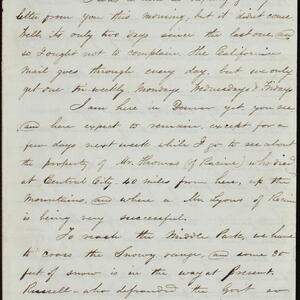 letter from you this morning, but it didn't come
Well, its only two days since the last one, and
so I ought not to complain. The California
Mail goes through every day, but we only
get one tri-weekly, Mondays, Wednesdays & Fridays
I am here in Denver yet, you see,
and here expect to remain, except for a
few days next week while I go to see about
the property of Mr. Thomas (of Racine) who died
at Central City, 40 miles from here, up the
Mountains, and where a Mr Lyons of Racine
is being very successful.
To reach the Middle Park, we have
to cross the Snowy range, and some 30
feet of snow is in the way at present.
Russell - who defrauded the Govt so